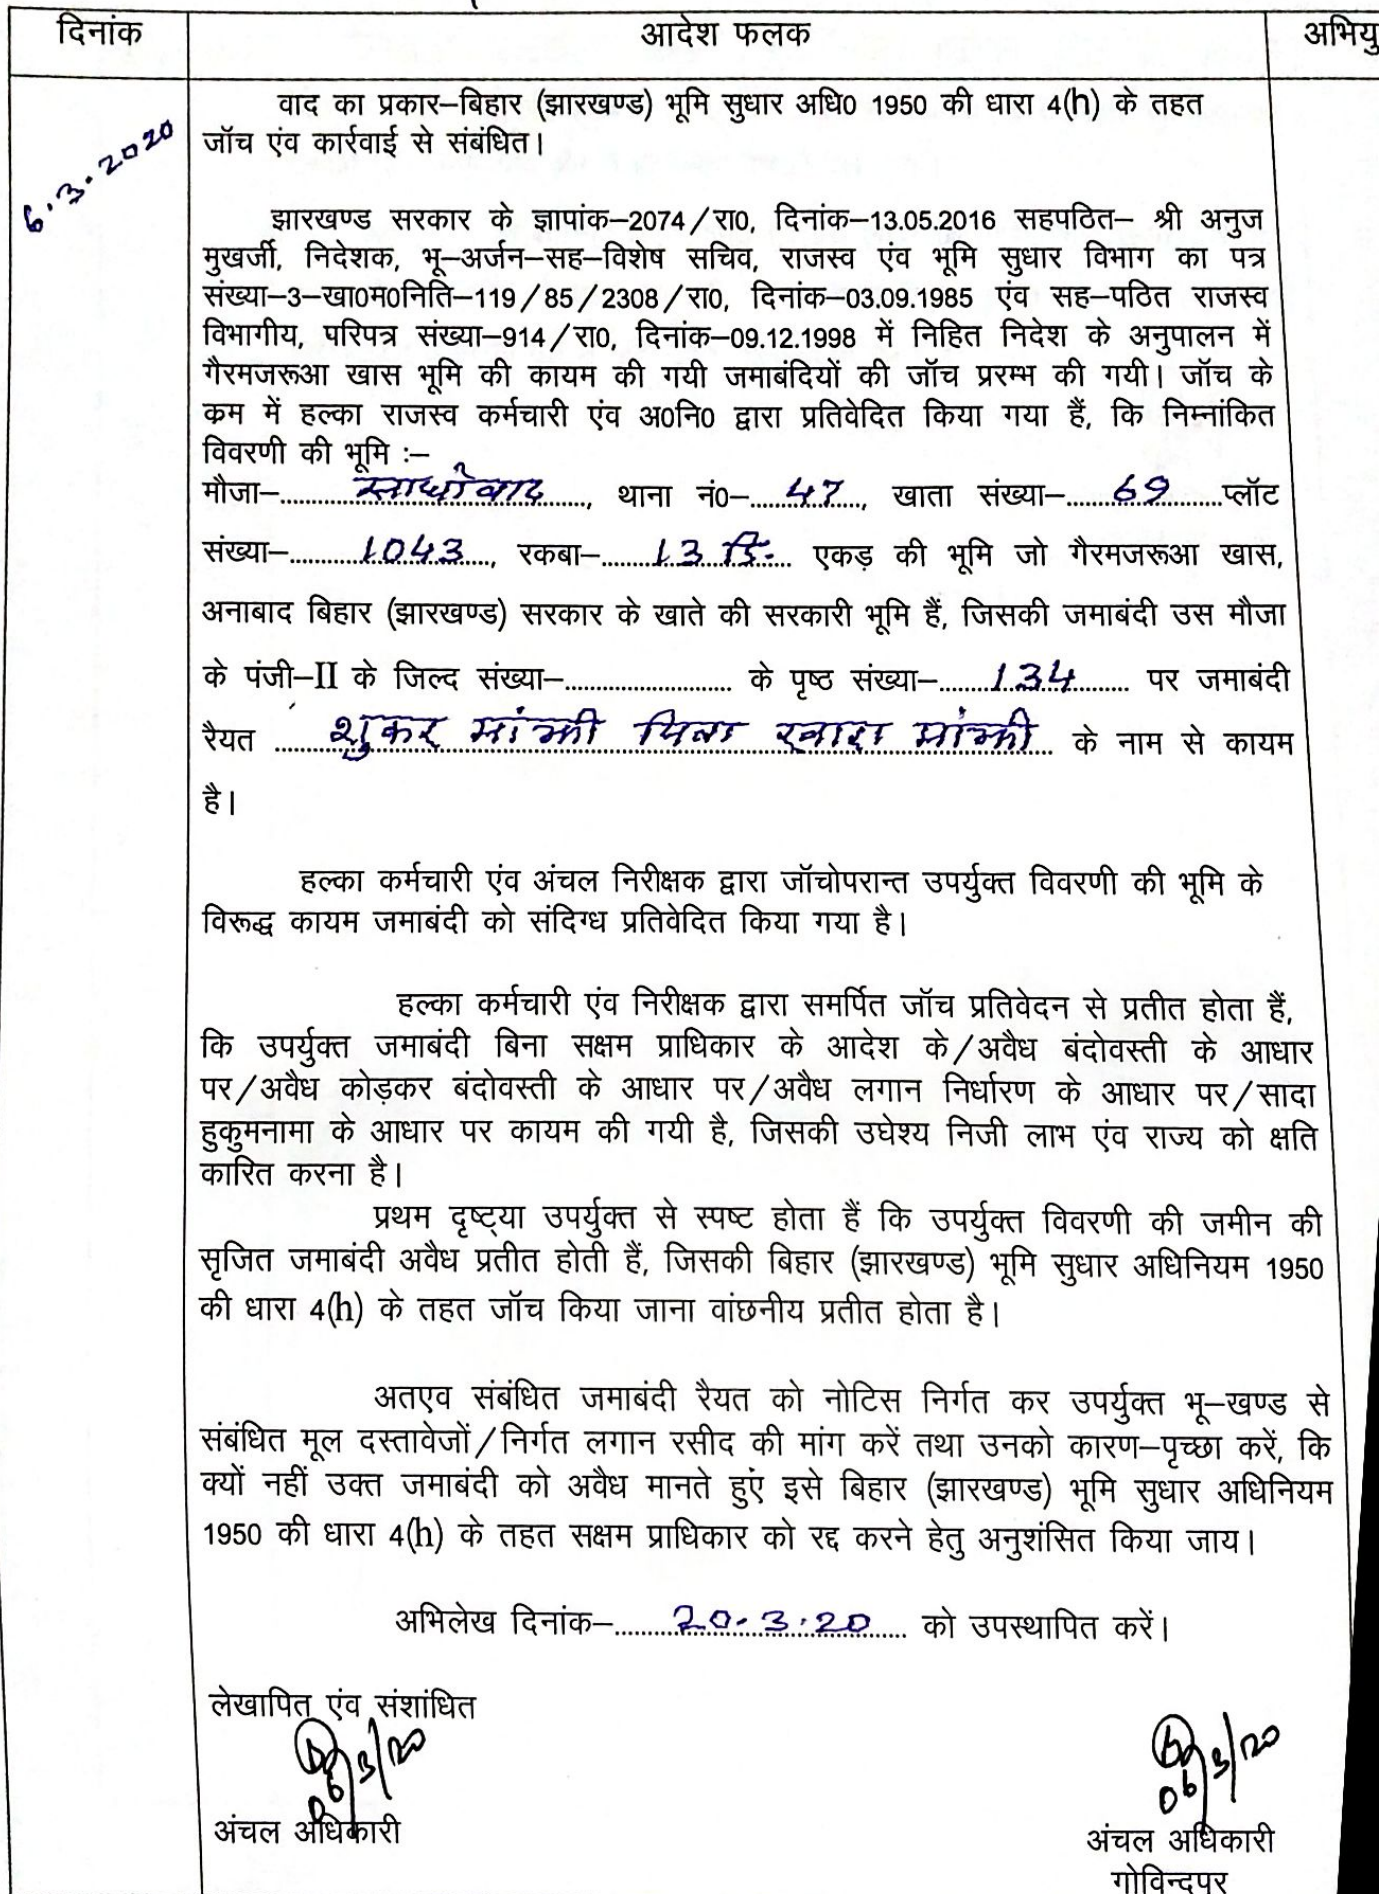 दिनांक आदेश फलक अभियु
6.3.2020
वाद का प्रकार–बिहार (झारखण्ड) भूमि सुधार अधि0 1950 की धारा 4(h) के तहत
जॉच एंव कार्रवाई से संबंधित।
झारखण्ड सरकार के ज्ञापांक–2074/रा0, दिनांक–13.05.2016 सहपठित– श्री अनुज
मुखर्जी, निदेशक, भू–अर्जन–सह–विशेष सचिव, राजस्व एंव भूमि सुधार विभाग का पत्र
संख्या–3–खा0म0निति–119/85/2308/रा0, दिनांक–03.09.1985 एंव सह–पठित राजस्व
विभागीय, परिपत्र संख्या–914/रा0, दिनांक–09.12.1998 में निहित निदेश के अनुपालन में
गैरमजरूआ खास भूमि की कायम की गयी जमाबंदियों की जॉच प्ररम्भ की गयी। जॉच के
क्रम में हल्का राजस्व कर्मचारी एंव अ0नि0 द्वारा प्रतिवेदित किया गया हैं, कि निम्नांकित
विवरणी की भूमि :–
मौजा–.......साधोवाद......., थाना नं0–....47...., खाता संख्या–......69......प्लॉट
संख्या–.......1043......., रकबा–......13 डि....... एकड़ की भूमि जो गैरमजरूआ खास,
अनाबाद बिहार (झारखण्ड) सरकार के खाते की सरकारी भूमि हैं, जिसकी जमाबंदी उस मौजा
के पंजी–II के जिल्द संख्या–......................... के पृष्ठ संख्या–.......134....... पर जमाबंदी
रैयत .......शुकर मांझी पिता मांझी....... के नाम से कायम
है।
हल्का कर्मचारी एंव अंचल निरीक्षक द्वारा जॉचोपरान्त उपर्युक्त विवरणी की भूमि के
विरूद्ध कायम जमाबंदी को संदिग्ध प्रतिवेदित किया गया है।
हल्का कर्मचारी एंव निरीक्षक द्वारा समर्पित जॉच प्रतिवेदन से प्रतीत होता हैं,
कि उपर्युक्त जमाबंदी बिना सक्षम प्राधिकार के आदेश के/अवैध बंदोवस्ती के आधार
पर/अवैध कोड़कर बंदोवस्ती के आधार पर/अवैध लगान निर्धारण के आधार पर/सादा
हुकुमनामा के आधार पर कायम की गयी है, जिसकी उघेश्य निजी लाभ एंव राज्य को क्षति
कारित करना है।
प्रथम दृष्ट्या उपर्युक्त से स्पष्ट होता हैं कि उपर्युक्त विवरणी की जमीन की
सृजित जमाबंदी अवैध प्रतीत होती हैं, जिसकी बिहार (झारखण्ड) भूमि सुधार अधिनियम 1950
की धारा 4(h) के तहत जॉच किया जाना वांछनीय प्रतीत होता है।
अतएव संबंधित जमाबंदी रैयत को नोटिस निर्गत कर उपर्युक्त भू–खण्ड से
संबंधित मूल दस्तावेजों/निर्गत लगान रसीद की मांग करें तथा उनको कारण–पृच्छा करें, कि
क्यों नहीं उक्त जमाबंदी को अवैध मानते हुएं इसे बिहार (झारखण्ड) भूमि सुधार अधिनियम
1950 की धारा 4(h) के तहत सक्षम प्राधिकार को रद्द करने हेतु अनुशंसित किया जाय।
अभिलेख दिनांक–.......20.3.20....... को उपस्थापित करें।
लेखापित एंव संशांधित
06/3/20 06/3/20
अंचल अधिकारी अंचल अधिकारी
गोविन्दपुर